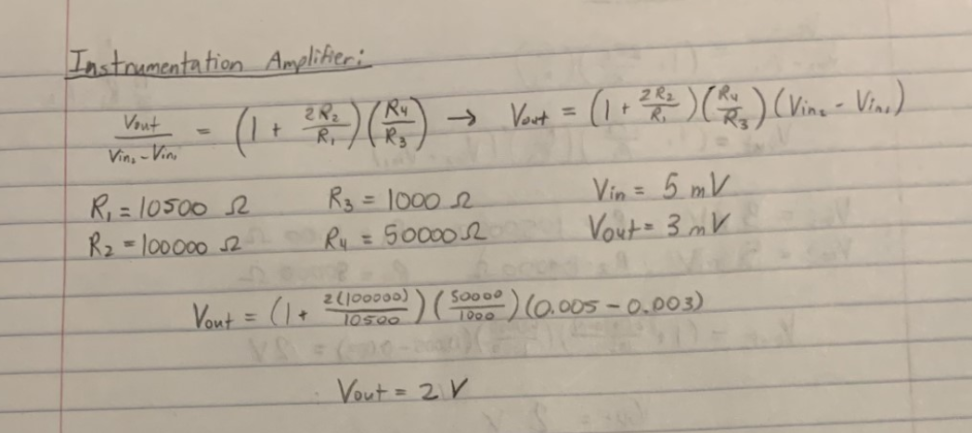 Instrumentation Amplifier:
Vout / (Vin₂ - Vin₁) = (1 + 2R₂/R₁)(R₄/R₃) → Vout = (1 + 2R₂/R₁)(R₄/R₃)(Vin₂ - Vin₁)
R₁ = 10500 Ω R₃ = 1000 Ω Vin = 5 mV
R₂ = 100000 Ω R₄ = 50000 Ω Vout = 3 mV
Vout = (1 + 2(100000)/10500)(50000/1000)(0.005 - 0.003)
Vout = 2 V